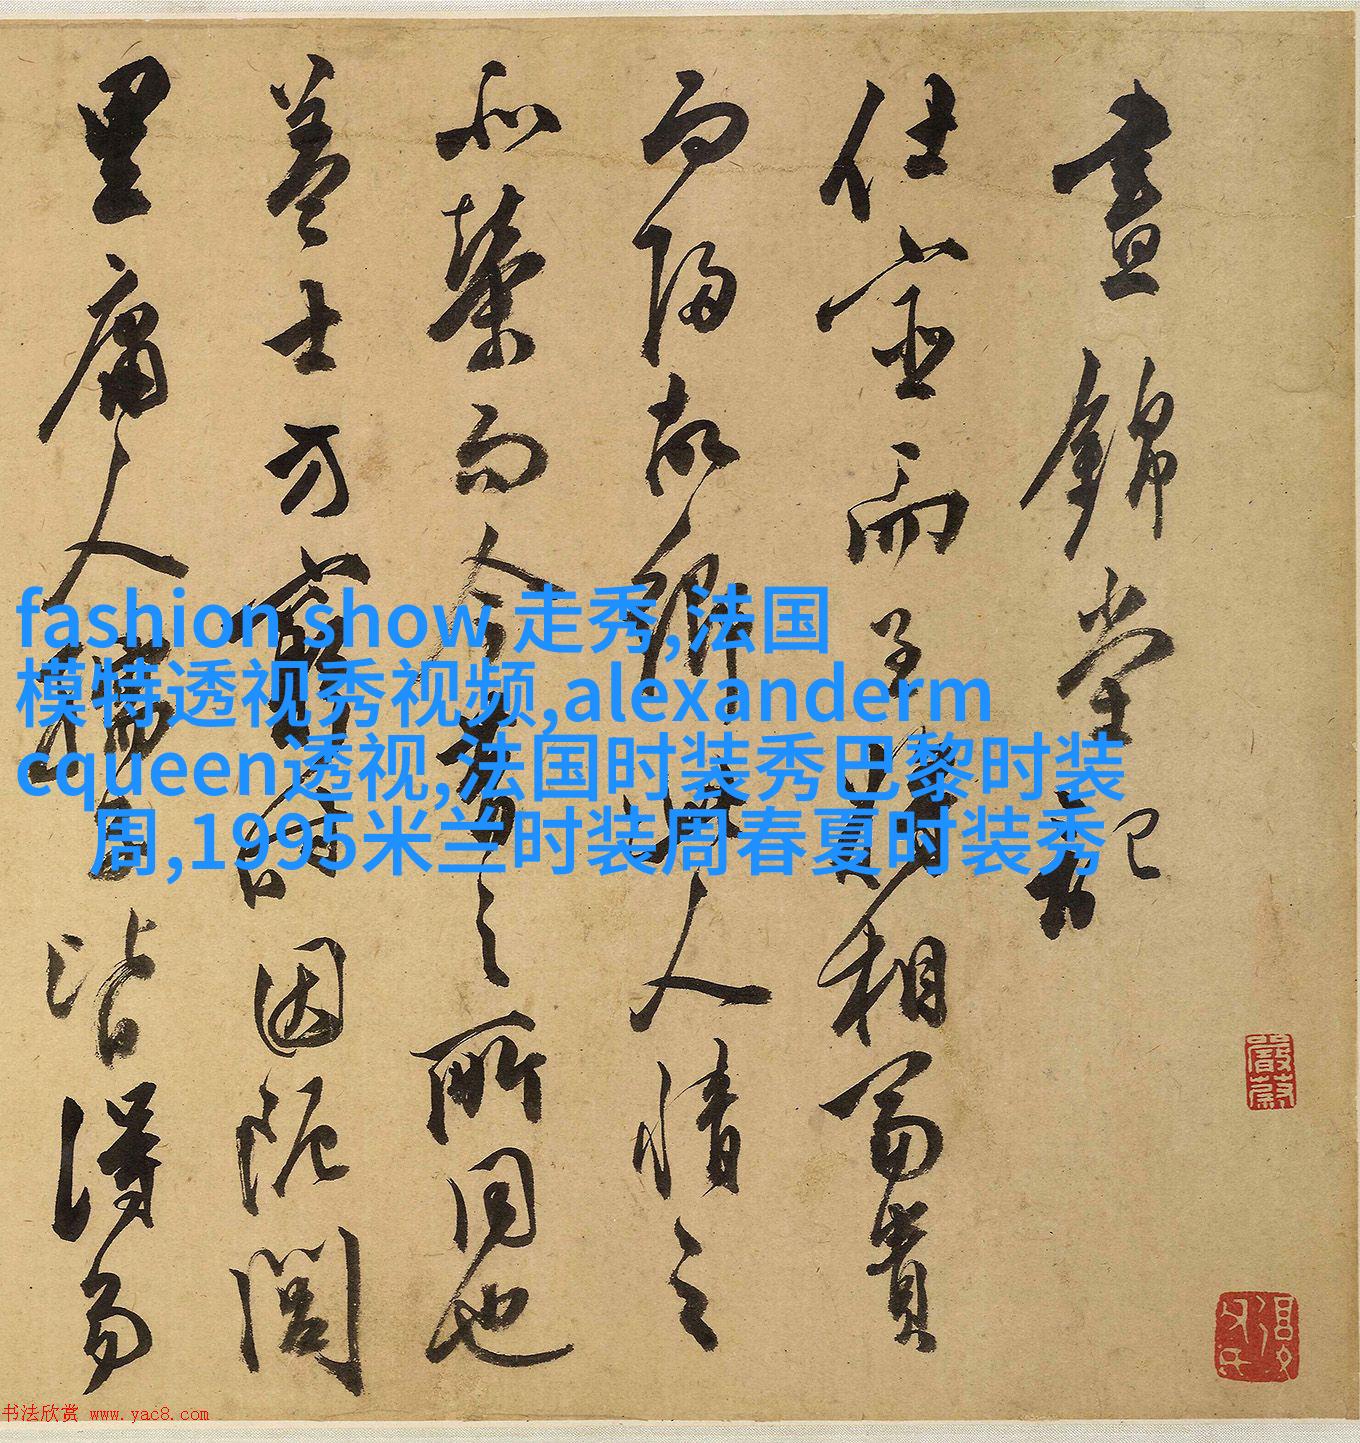 晝錦堂記
仕宦而至將相富貴
而歸故鄉此人情之
所榮而今昔之所同也
蓋士方窮時困阨閭
里庸人孺子皆得易
fashion show 走秀,法国
模特透视秀视频,alexanderm
cqueen透视,法国时装秀巴黎时装
周,1995米兰时装周春夏时装秀
书法欣赏 www.yac8.com